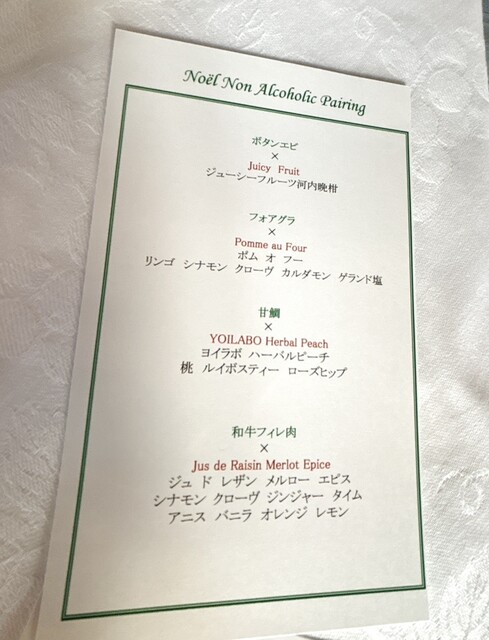 Noël Non Alcoholic Pairing
ボタンエビ
×
Juicy Fruit
ジューシーフルーツ河内晩柑
フォアグラ
×
Pomme au Four
ポム オ フー
リンゴ シナモン クローヴ カルダモン ゲランド塩
甘鯛
×
YOILABO Herbal Peach
ヨイラボ ハーバルピーチ
桃 ルイボスティー ローズヒップ
和牛フィレ肉
×
Jus de Raisin Merlot Epice
ジュ ド レザン メルロー エピス
シナモン クローヴ ジンジャー タイム
アニス バニラ オレンジ レモン